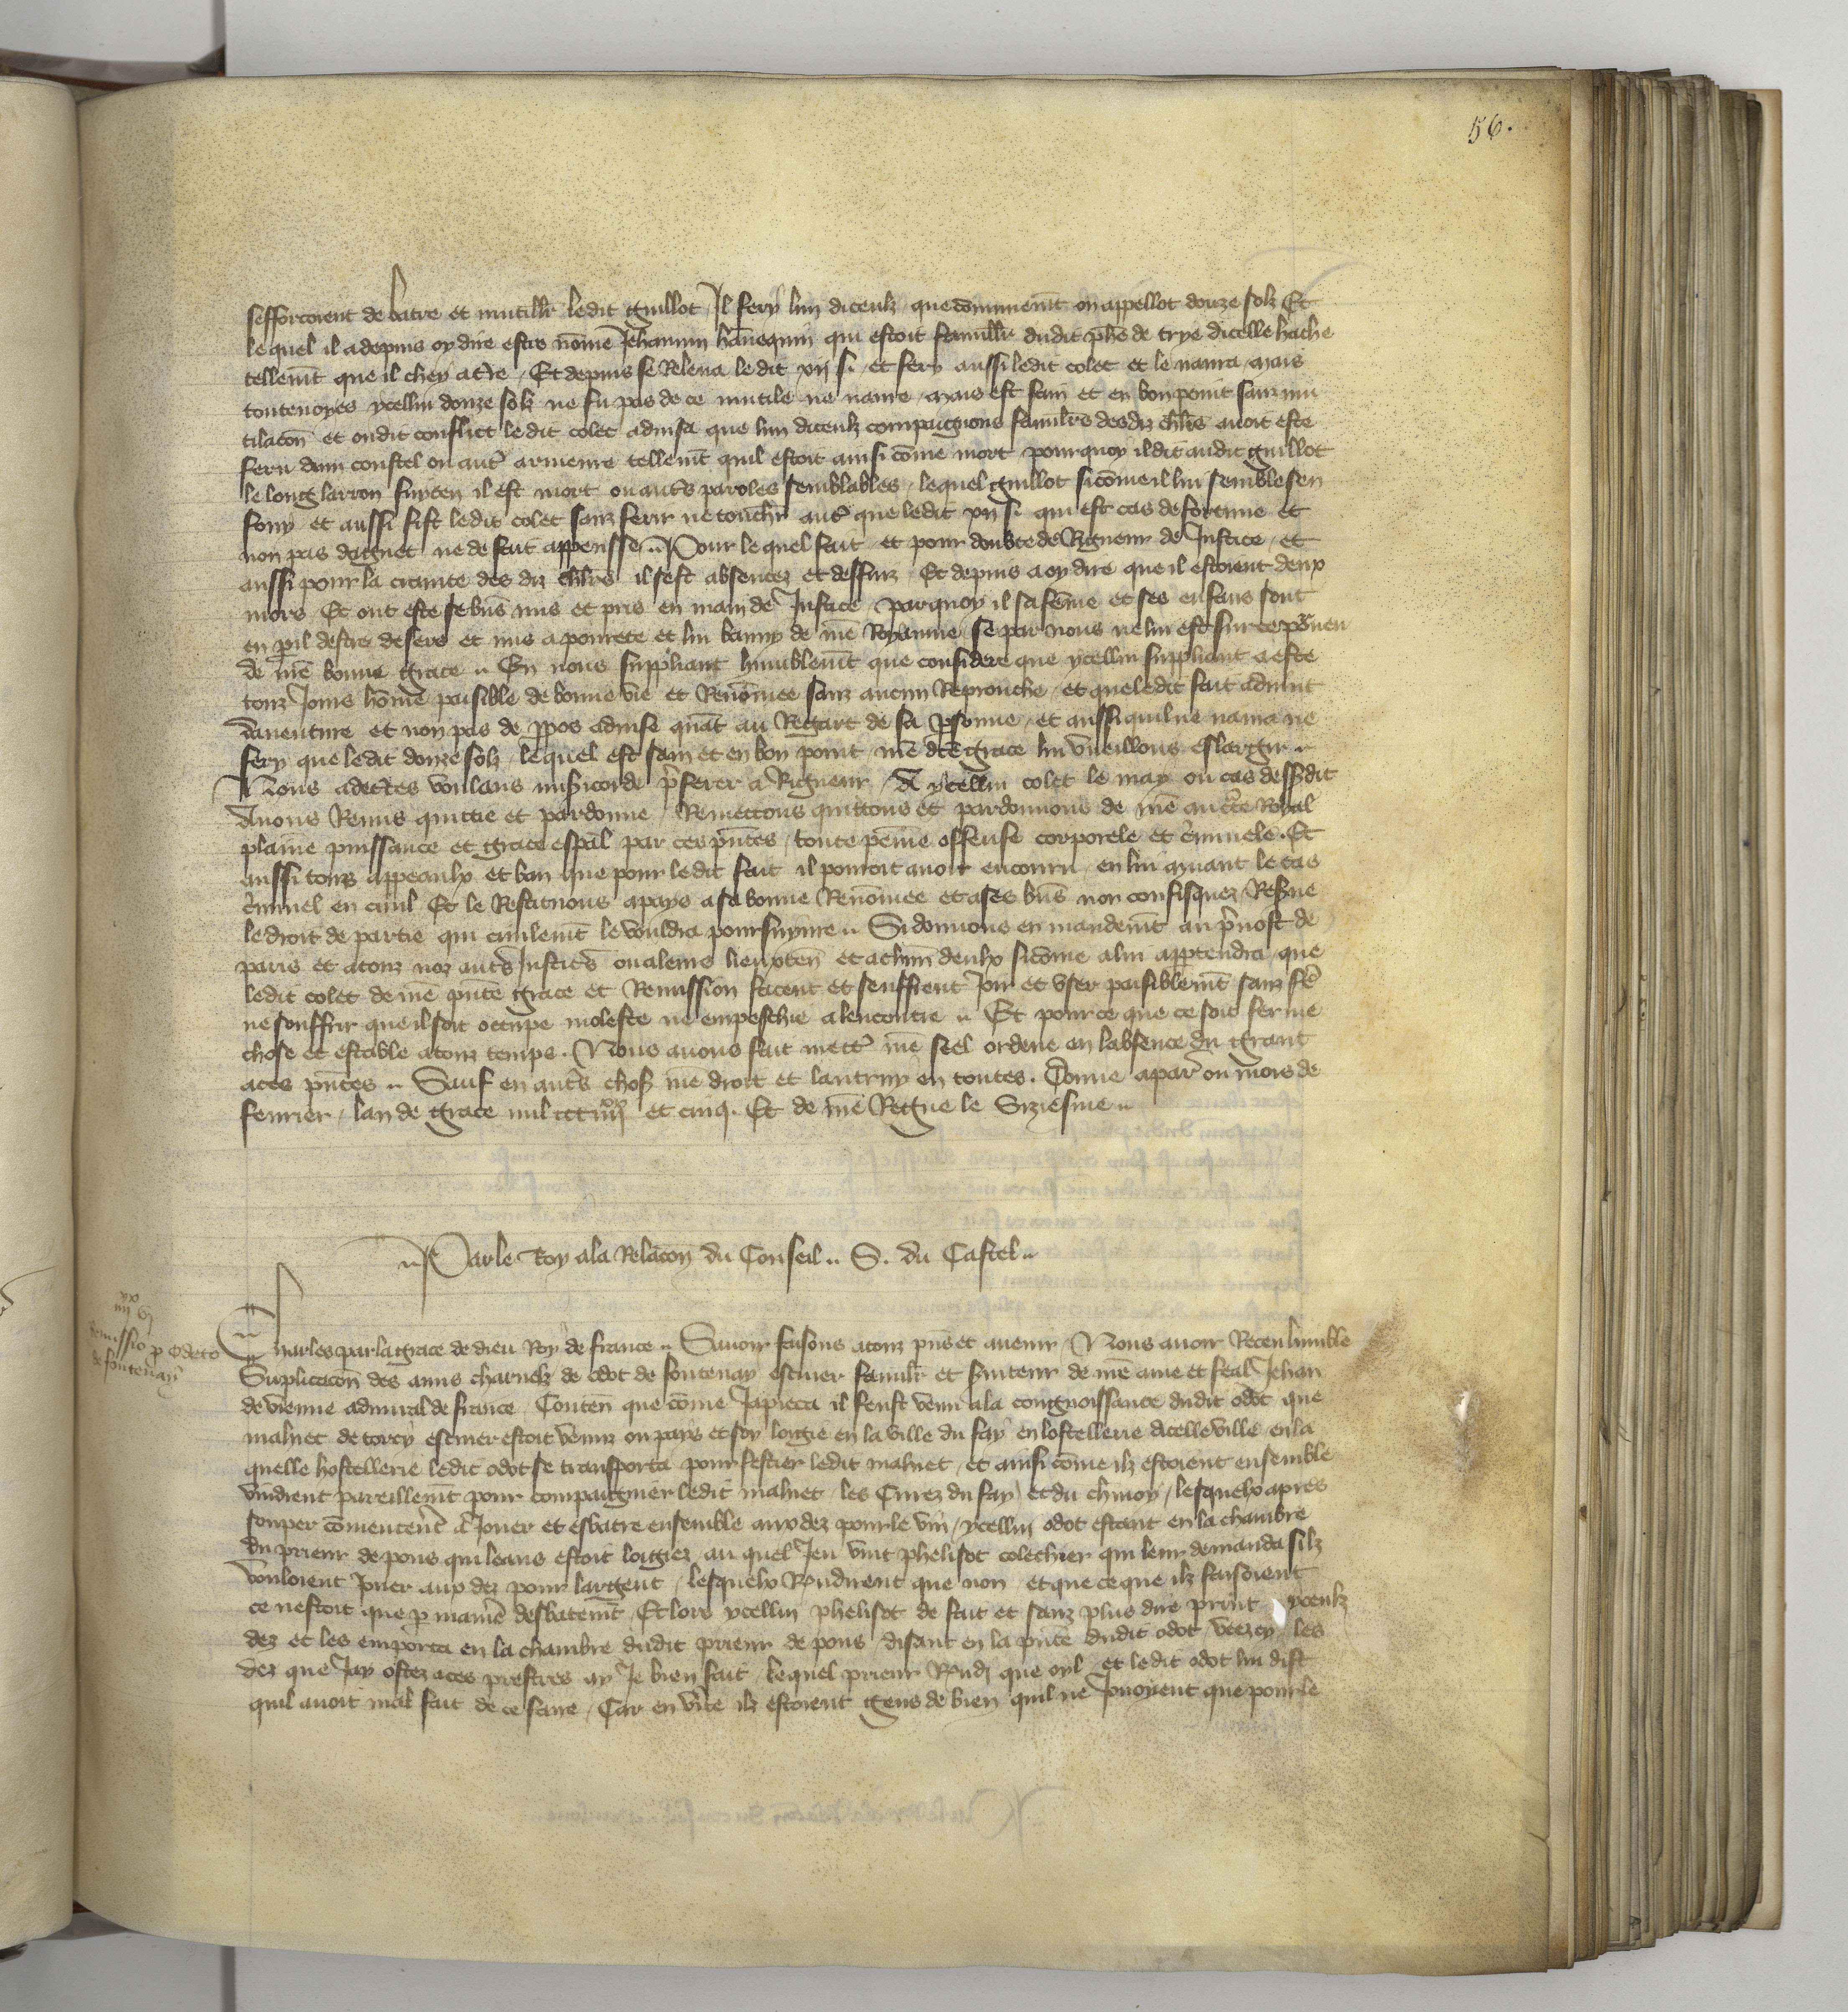 56.
sefforcoient de batre et mutiller ledit Guillot Il fery lun diceulx que communemt on appellot douze solz Et
lequel il a depuis oy dire estre nōme Jehannin hānequin qui estoit familier dudit phē de trye dicelle hache
tellemt que il chey a tre / Et depuis se Releva ledit xij s. et fery aussi ledit colet et le navra mais
toutevoyes ycellui douze solz ne fu pas de ce mutile ne navre mais est sain et en bon point sanz mu
tilacōn et oudit conflict ledit colet advisa que lun diceulx compaignons familrs desdiz chlrs avoit este
feru dun coustel ou autr armeure tellemt quil estoit ainsi cōme mort pourquoy il dit audit guillot
le long larron fuyten il est mort ou autrs paroles semblables / lequel guillot si cōme il lui semble sen
fouy et aussi fist ledit colet sanz ferir ne touchr autr que ledit xij s. qui est cas de fortune et
non pas daguet ne de fait appensse .. Pour lequel fait et pour doubte de Rigueur de Justice / et
aussi pour la crainte des diz chlrs il sest absentez et deffuiz / Et depuis a oy dire que il estoient deux
mors Et ont este ses biēs mis et pris en main de Justice / parquoy il sa fēme et ses enfans sont
en pil destre desers et mis a povrete et lui banny de nrē Royaume se par nous ne lui est sur ce prveu
de nrē bonne grace .. En nous suppliant humblemt que considere que ycellui suppliant a este
touz Jours hōme paisible de bonne vie et Renōmee sanz aucun Reprouche / et que ledit fait advint
daventure et non pas de ppos advise quāt au Regart de sa psonne / et aussi quil ne navra ne
fery que ledit douze solz / lequel est sain et en bon point nrē dcē grace lui vueillons eslargir ..
Nous adectes voulans misicorde prferer a Rigueur / A ycellui colet le may ou cas dessdit
Avons Remis quictie et pardonne / Remettons quittons et pardonnons de nrē auctte Royal
plaine puissance et grace espāl par ces pntes / toute peine offense corporele et crminele . Et
aussi touz appeaulx et ban que pour ledit fait il pourroit avoir encouru en lui muant le cas
crminel en civil Et le Restituons a pays a sa bonne Renōmee et a ses biēs non confisquez / Resve
le droit de partie qui civilemt le vouldra poursuyvre .. Si donnons en mandemt au prvost de
paris et a touz noz autrs Justicrs ou a leurs lieuxten et a chūn deulx si cōme a lui apptendra / que
ledit colet de nrē pnte grace et Remission facent et seuffrent Joir et vser paisiblemt sanz fre
ne souffrir que il soit occupe moleste ne empeschie a lencontre .. Et pour ce que ce soit ferme
chose et estable a touz temps . Nous avons fait mettr nrē seel ordene en labsence du grant
a ces pntes .. Sauf en autrs choses nrē droit et lautruy en toutes . Donne a par ou mois de
fevrier / lan de grace mil ccciiijxx et cinq . Et de nrē Regne le Siziesme ..
.. Par le Roy a la Relacōn du Conseil .. S. du Castel ..
xx
iiij vj
Remissio p odeto
de fontenay
Charles par la grace de dieu Roy de france .. Savoir faisons a touz pns et avenir / Nous avoir Receu humble
Supplicacōn des amis charnelz de odot de fontenay escuier familr et svuteur de nrē ame et feal Jehan
de vienne admiral de france / Contenn que cōme Japieca il feust venu a la congnoissance dudit odot que
malvet de torcy escuier estoit venuz ou pays et soy logie en la ville du fay en lostellerie dicelle ville en la
quelle hostellerie ledit odot se transporta pour festier ledit malvet / et ainsi cōme ilz estoient ensemble
vindrent pareillemt pour compaignier ledit malvet / les Curez du fay et du chmoy / lesquelx apres
souper cōmencernt a Jouer et esbatre ensemble aux dez pour le vin / ycellui odot estant en la chambre
du prieur de pons qui leans estoit logiez / au quel Jeu vint phelisot colechier qui leur demanda silz
vouloient Jouer aux dez pour largent / lesquelx Rndirent que non et que ce que ilz faisoient
ce nestoit que p manie desbatemt / Et lors ycellui phelisot de fait et sanz plus dire print yceulx
dez et les emporta en la chambre dudit prieur de pons disant en la pnce dudit odot / veezcy les
dez que Jay ostez a ces prestres ay Je bien fait / lequel prieur Rndi que oyl et ledit odot lui dist
quil avoit mal fait de ce faire / Car en vite ilz estoient gens de bien quil ne Jouoyent que pour le